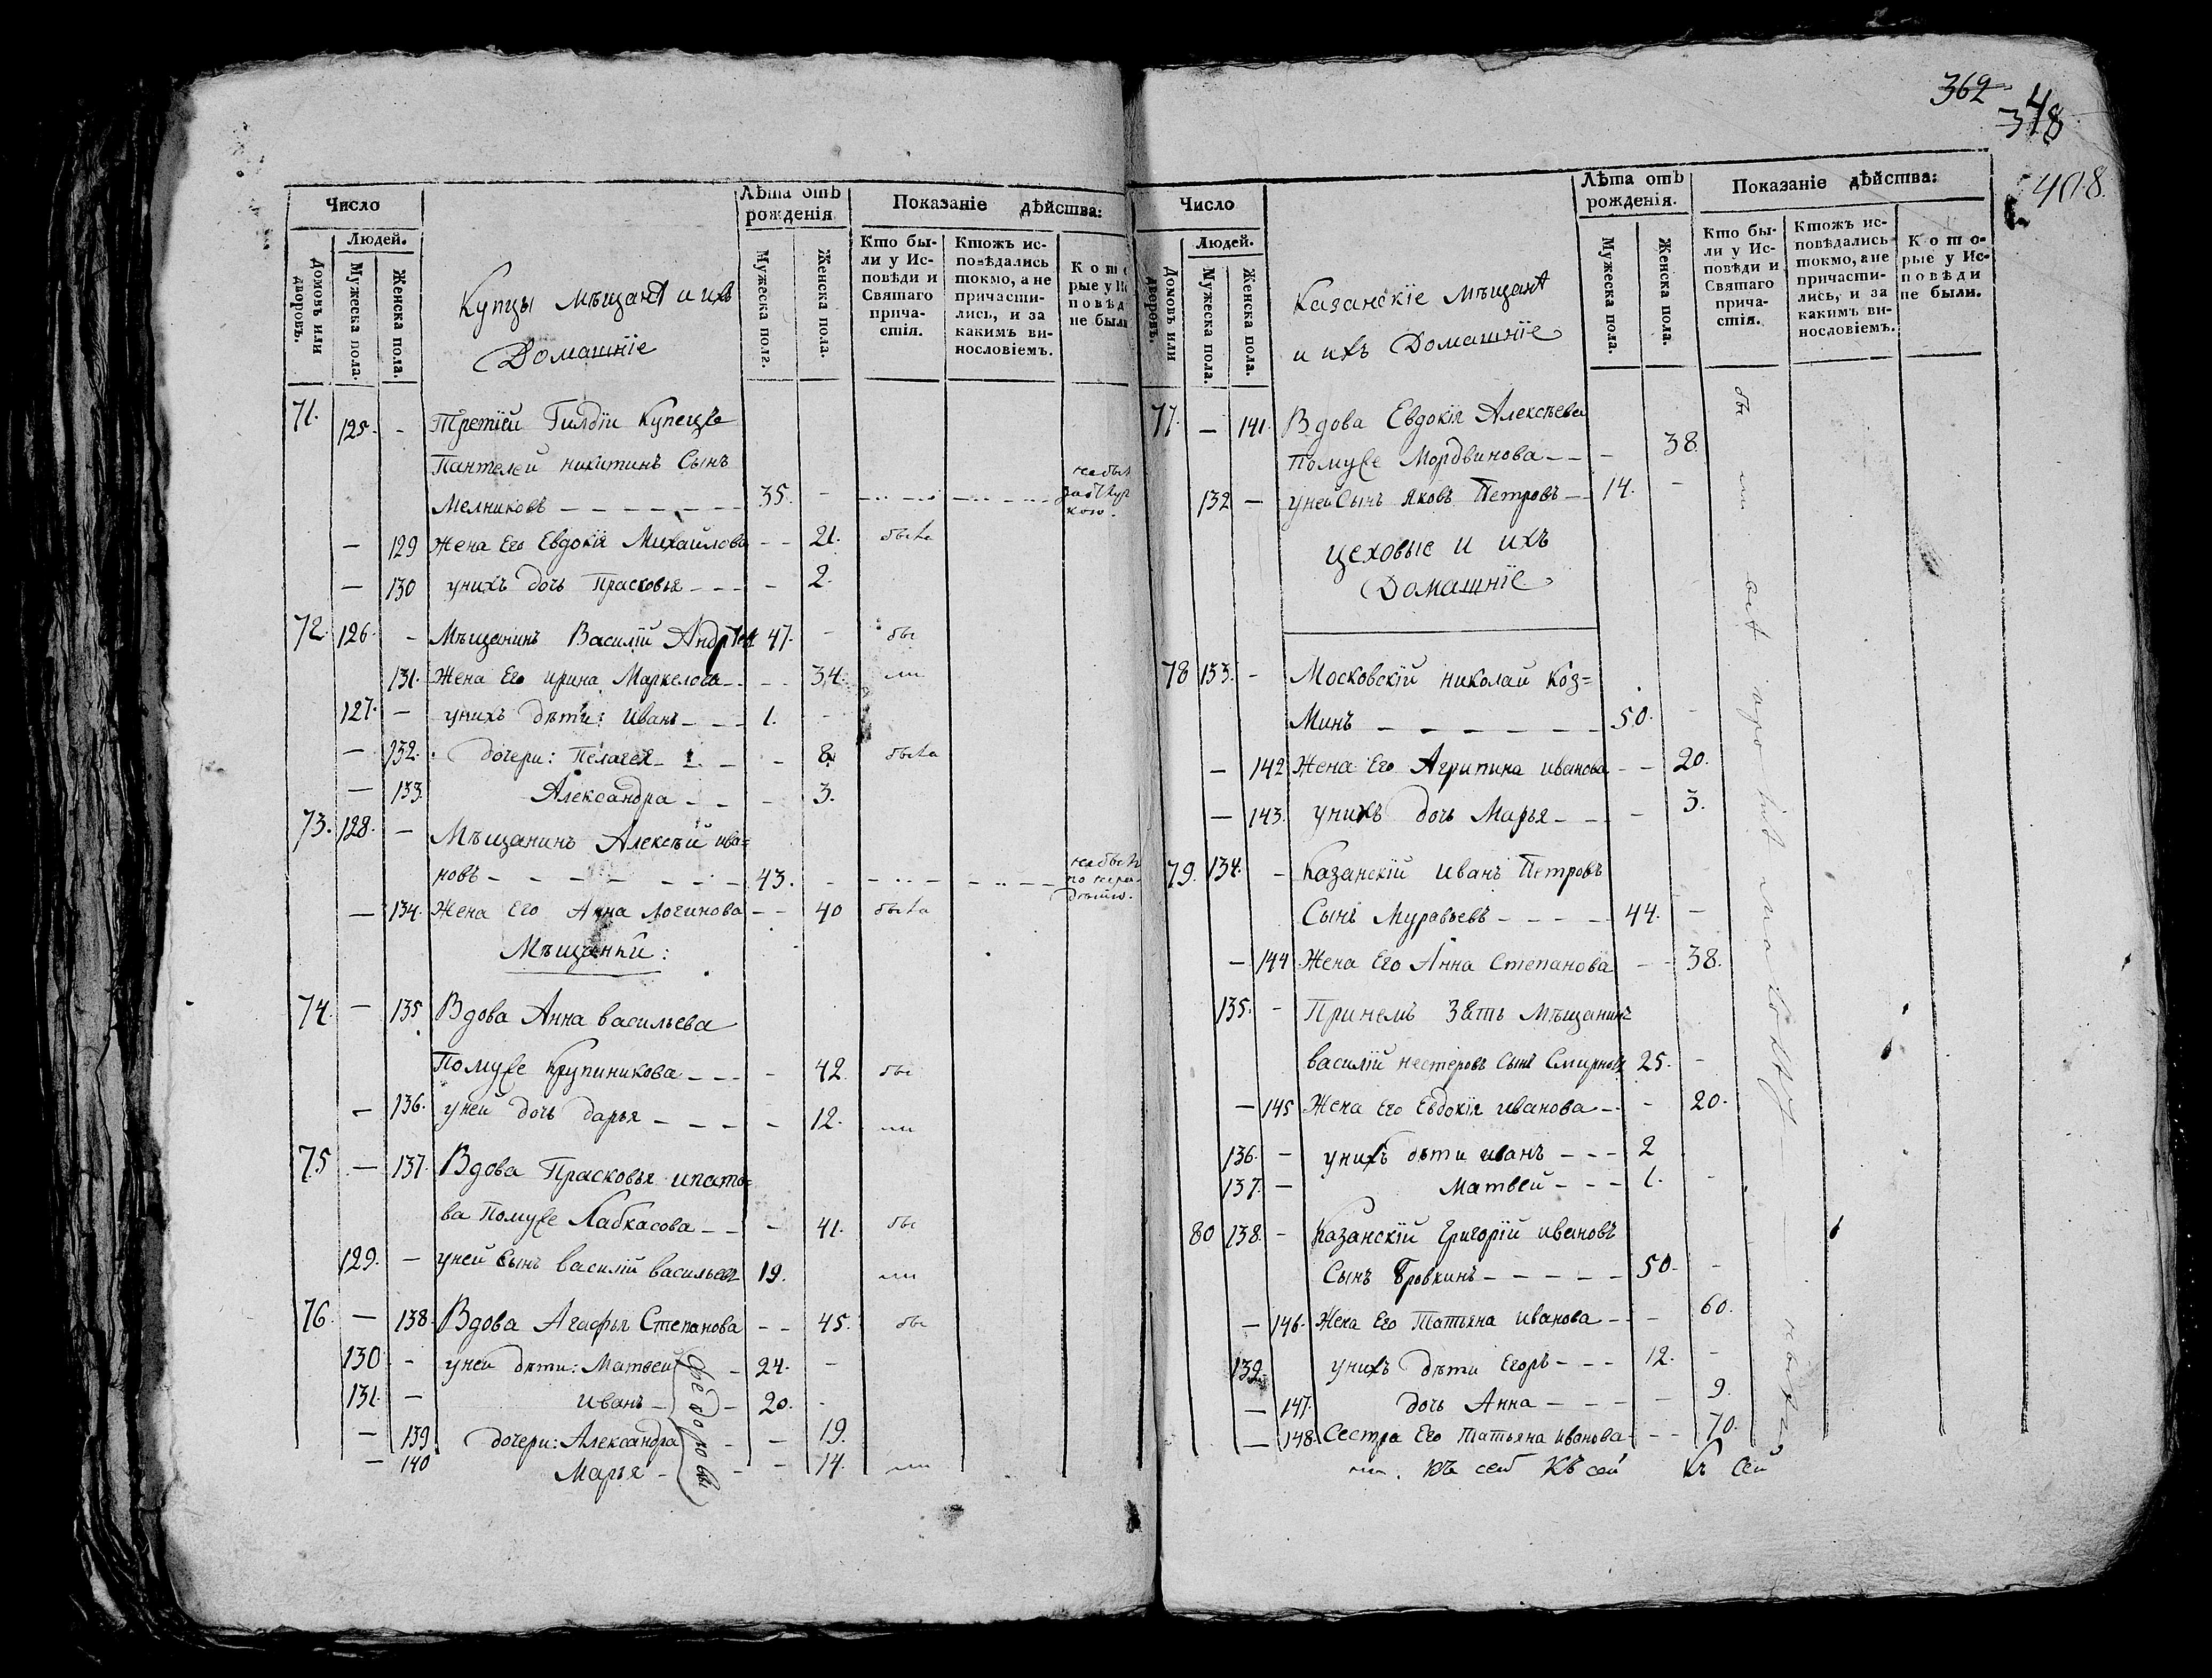 362
348
408.
Число
Людей.
Домовъ или дворовъ.
Мужеска пола.
Женска пола.
Купцы мѣщанѣ и ихъ
Домашніе
Лѣта отъ рожденія
Мужеска пола.
Женска пола.
Показаніе дѣйства:
Кто бы-
ли у Ис-
повѣди и
Святаго
прича-
стія.
Ктожъ ис-
повѣдались
токмо, а не
причасти-
лись, и за
какимъ ви-
нословіемъ.
71. 125. - Третіей Гилдіи Купецъ
Пантелей никитинъ Сынъ
Мелниковъ 35. -
- 129 Жена Его Евдокія Михайлова - - 21. была
- 130 унихъ дочь Прасковья - - 2.
72. 126. - Мѣщанинъ Василій Андрѣевъ 47. - бы
131. Жена Его ирина Маркелова - - 34. ли
127. - унихъ дѣти: иванъ - 1. -
- 132. дочери: Пелагея - - 8. была
- 133. Александра - - 3.
73. 128. - Мѣщанинъ Алексѣй ива=
новъ - 43. -
- 134. Жена Его Анна Логинова - - 40 была
Мѣщанки:
74. - 135 Вдова Анна васильева
Помуже Крупиникова - - 42. бы
- 136. уней дочь дарья - - 12. ли
75 - 137. Вдова Прасковья ипато=
ва Помуже Лабкасова - - 41. бы
129. - уней сынъ василій васильевъ 19. ли
76. - 138. Вдова Агафья Степанова - - 45. бы
130 - уней дѣти: Матвей - 24. -
131. - иванъ - 20. -
- 139. дочери: Александра - - 19.
- 140 Марья - - 14. ли
Ѳедоровы
Число
Людей.
Домовъ или дворовъ.
Мужеска пола.
Женска пола.
Казанскіе мѣщанѣ
и ихъ Домашніе
Лѣта отъ рожденія.
Мужеска пола.
Женска пола.
Показаніе дѣйства:
Кто бы-
ли у Ис-
повѣди и
Святаго
прича-
стія.
Ктожъ ис-
повѣдались
токмо, а не
причасти-
лись, и за
какимъ ви-
нословіемъ.
Кото-
рые у Ис-
повѣди
не были.
77. - 141. Вдова Евдокія Алексѣева
Помуже Мордвинова - - - 38.
132 - уней Сынъ Яковъ Петровъ - 14. -
цеховые и ихъ
Домашніе
78 133. - Московскій николай Коз=
Минъ - 50. -
- 142 Жена Его Агрипина иванова - - 20.
- 143. унихъ дочь Марья - - 3.
79. 134. - Казанскій иванъ Петровъ
Сынъ Муравьевъ - 44. -
- 144 Жена Его Анна Степанова - - 38.
135. - Принемъ Зять мѣщанинъ
василій нестеровъ Сынъ Смирновъ 25. -
- 145 Жена Его Евдокія иванова - - 20.
136. - унихъ дѣти иванъ - 2
137. - Матвей - 1. -
80 138. - Казанскій Григорій ивановъ
Сынъ Бровкинъ - 50. -
- 146. Жена Его Татьяна иванова - - 60.
139. унихъ дѣти Егоръ - 12. -
- 147. дочь Анна - - 9.
- 148. Сестра Его Татьяна иванова - - 70.